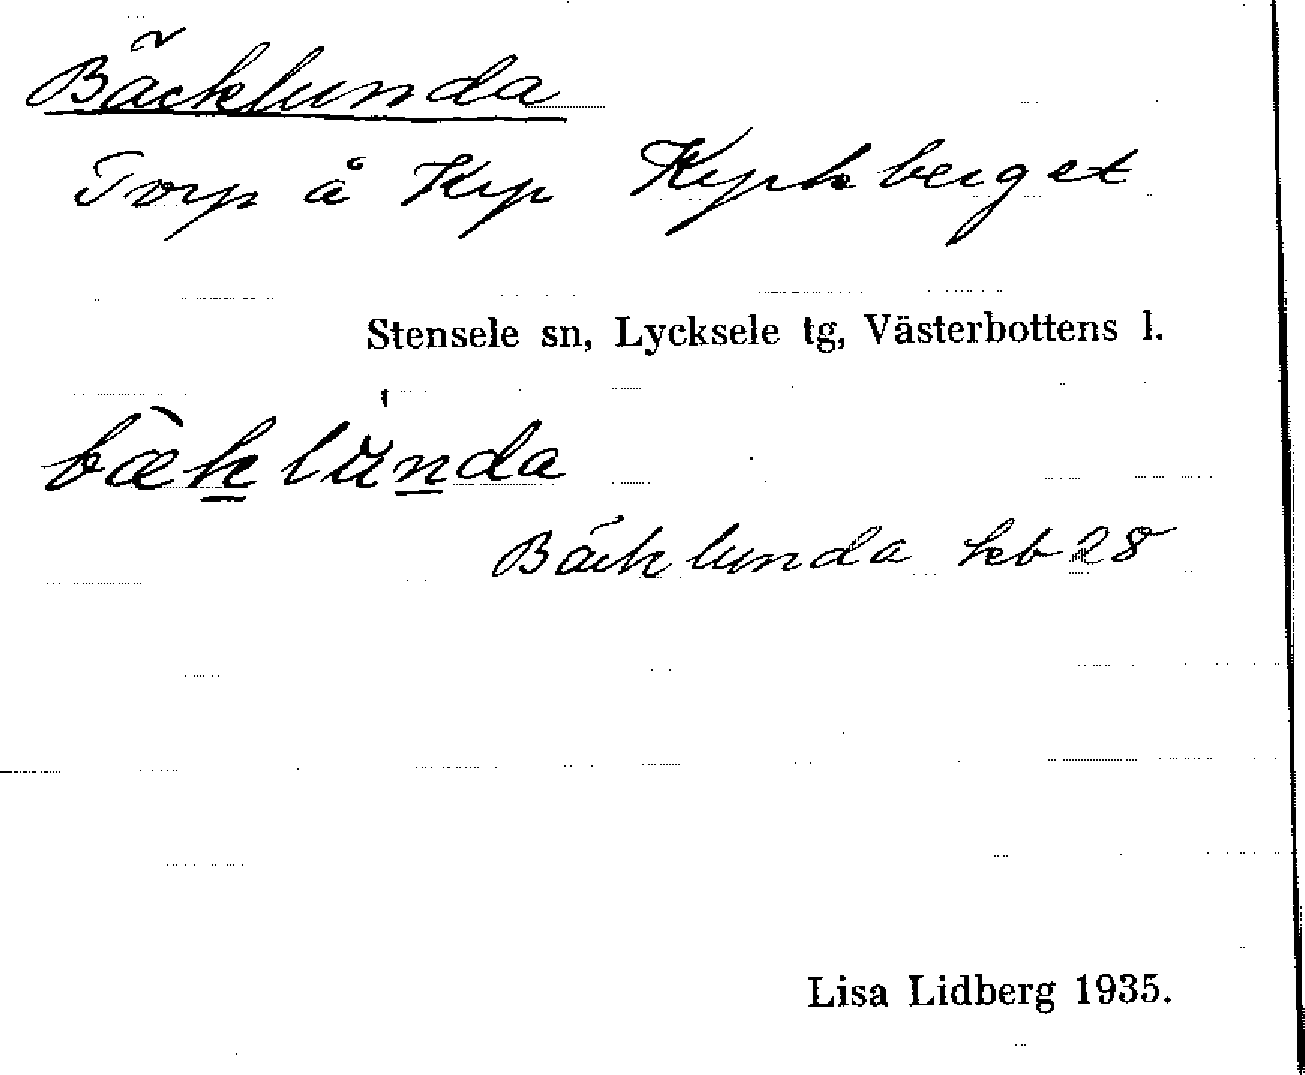 Bäcklunda
Torp å Kyp Kyrkberget
Stensele sn, Lycksele tg, Västerbottens l.
bæ̀klu̇nda
Bäcklunda kb 28
Lisa Lidberg 1935.